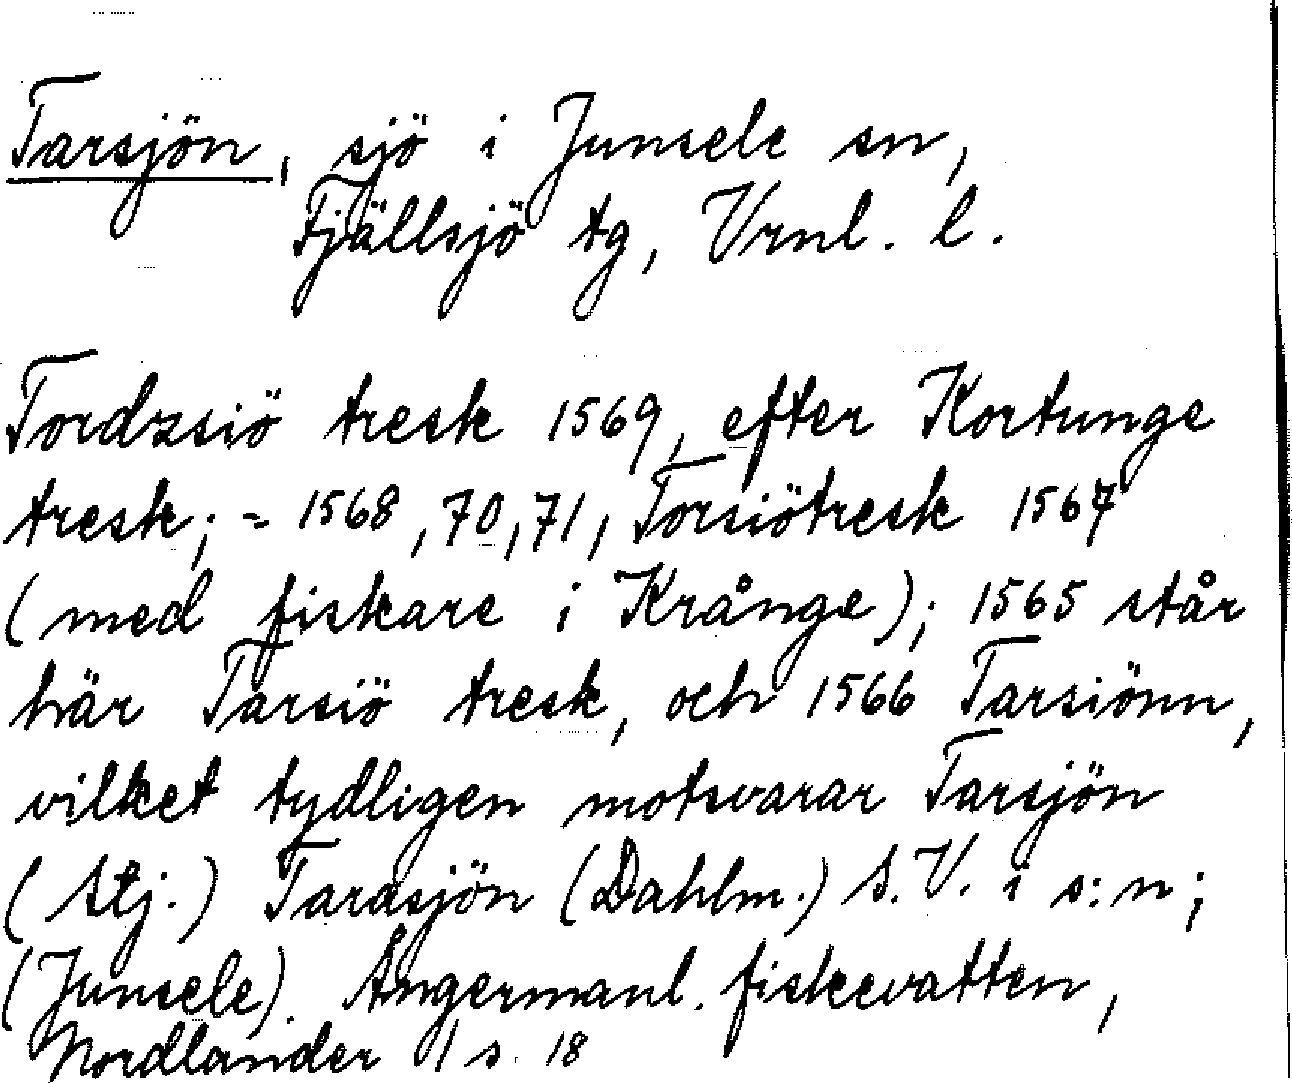 Tarsjön, sjö i Junsele sn,
Fjällsjö tg, Vrnl. l.
Tordzsiö tresk 1569, efter Kortunge
tresk; = 1568, 70, 71, Torsiötresk 1567
(med fiskare i Krånge); 1565 står
här Tarsiö tresk, och 1566 Tarsiönn,
vilket tydligen motsvarar Tarsjön
(Stj.) Tarasjön (Dahlm.) S.V. i s:n;
(Junsele). Ångermanl. fiskevatten,
Nordlander I s. 18